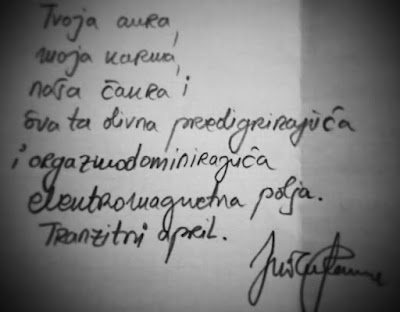 Tvoja aura,
moja karma,
naša čaura i
sva ta divna predigrirajuća
i orgazmodominirajuća
elektromagnetna polja.
Tranzitni april.